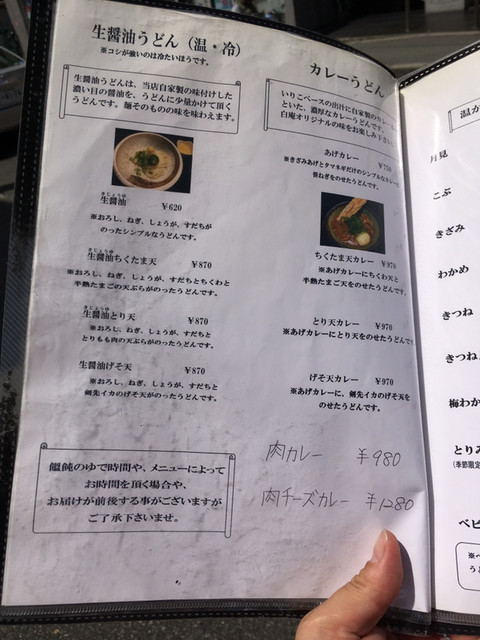 生醤油うどん（温・冷）
※コシが強いのは冷たいほうです。
生醤油うどんは、当店自家製の味付けした
濃い目の醤油を、うどんに少量かけて頂く
うどんです。麺そのものの味を味わえます。
きじょうゆ
生醤油 ￥620
※おろし、ねぎ、しょうが、すだちが
のったシンプルなうどんです。
きじょうゆ
生醤油ちくたま天 ￥870
※おろし、ねぎ、しょうが、すだちとちくわと
半熟たまごの天ぷらがのったうどんです。
きじょうゆ
生醤油とり天 ￥870
※おろし、ねぎ、しょうが、すだちと
とりもも肉の天ぷらがのったうどんです。
生醤油げそ天 ￥870
※おろし、ねぎ、しょうが、すだちと
剣先イカのげそ天がのったうどんです。
饂飩のゆで時間や、メニューによって
お時間を頂く場合や、
お届けが前後する事がございますが
ご了承下さいませ。
カレーうどん
いりこベースの出汁に自家製のカレー
といた、濃厚なカレーうどんです。
白庵オリジナルの味をお楽しみ下さい。
あげカレー ￥750
※きざみあげとタマネギだけのシンプルなカレーに
笹ねぎをのせたうどんです。
ちくたま天カレー ￥970
※あげカレーにちくわ天と
半熟たまご天をのせたうどんです。
とり天カレー ￥970
※あげカレーにとり天をのせたうどんです
げそ天カレー ￥970
※あげカレーに、剣先イカのげそ天を
のせたうどんです。
肉カレー ￥980
肉チーズカレー ￥1280
温か
月見
こぶ
きざみ
わかめ
きつね
きつね
梅わか
とりみ
（季節限定
ベビ